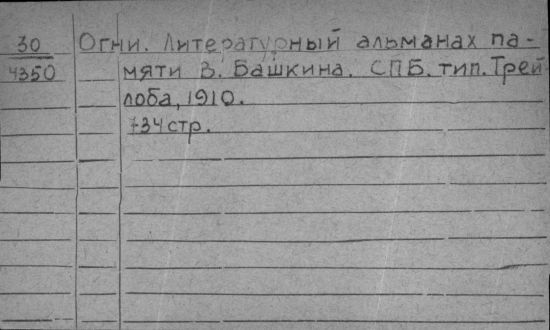 30
4350
Огни. Литературный альманах па-
мяти В. Башкина. СПБ. тип. Трей
лоба, 1910.
734 стр.